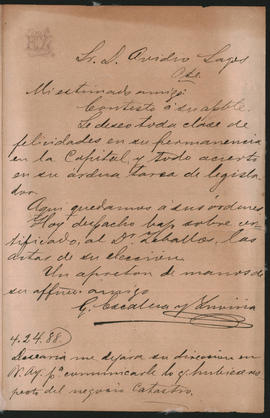 Sr. D. Ovidio Lagos
Pte.
Mi estimado amigo:
Contesto á su apble.
Le deseo toda clase de
felicidades en su permanencia
en la Capital, y todo acierto
en su árdua tarea de legisla
dor.
Aquí quedamos a sus ordenes
Hoy despacho bajo sobre cer-
tificado, al Dr. Zeballos, las
actas de su eleccion.
Un apreton de manos de
su affmo. amigo
G. Escalera y Zuviría
4.24.88.
Desearia me dejara su direccion en
Bs. Ay. pa. comunicarle lo q. hubiera res
pecto del negocio Catastro.